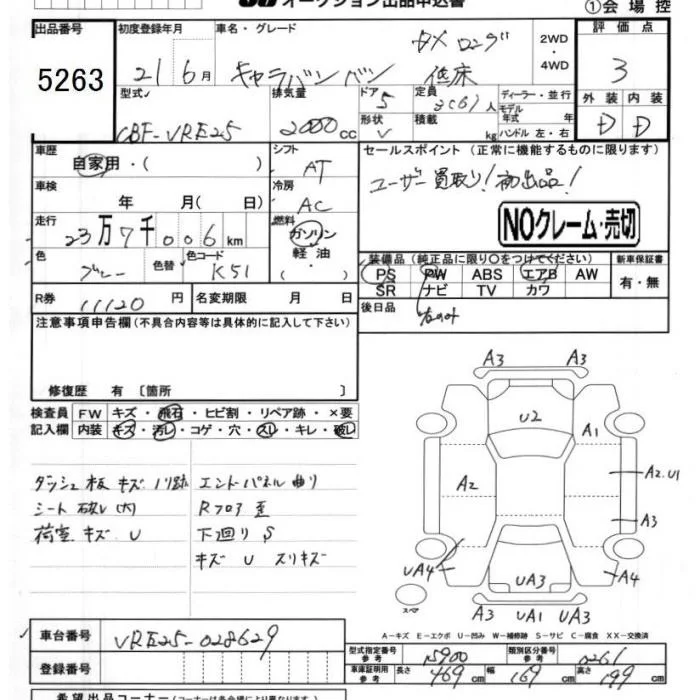 オークション出品申込書
①会場控
出品番号 初度登録年月 車名・グレード 2WD・4WD 評価点
5263 21 6月 キャラバンバン DX ロング 低床 3
型式 排気量 ドア 定員 ディーラー・並行 外装 内装
CBF-VRE25 2000cc 5 3(6)人 モデル年式 年式 D D
形状 V 積載 kg ハンドル 左・右
車歴 シフト セールスポイント (正常に機能するものに限ります)
自家用・( ) AT ユーザー買取り!初出品!
車検 冷房
年 月( 日) AC NOクレーム・売切
走行 燃料
23万7千006km ガソリン・軽油・
装備品(純正品に限り○をつけてください) 新車保証書
色 色替 色コード PS PW ABS エアB AW 有・無
ブルー K51 SR ナビ TV カワ
R券 11120円 名変期限 月 日 後日品 右のみ
注意事項申告欄(不具合内容等は具体的に記入して下さい)
修復歴 有 [箇所 ]
検査員 FW キズ・飛石・ヒビ割・リペア跡・×要
記入欄 内装 キズ・汚レ・コゲ・穴・スレ・キレ・破レ
ダッシュ板キズ ノリ跡
シート破レ(大)
荷室キズ U
エンドパネル曲り
Rフロア歪
下廻りS
キズ U スリキズ
A3 A3
U2
A1
A2 A2.U1
A3
UA4 UA3 A4
スペア A3 UA1 UA3
A-キズ E-エクボ U-凹み W-補修跡 S-サビ C-腐食 XX-交換済
車台番号 VRE25-028629
登録番号
型式指定番号 参考 15900 類別区分番号 参考 0261
車庫証明用 参考 長さ 469cm 幅 169cm 高さ 199cm
希望出品コーナー